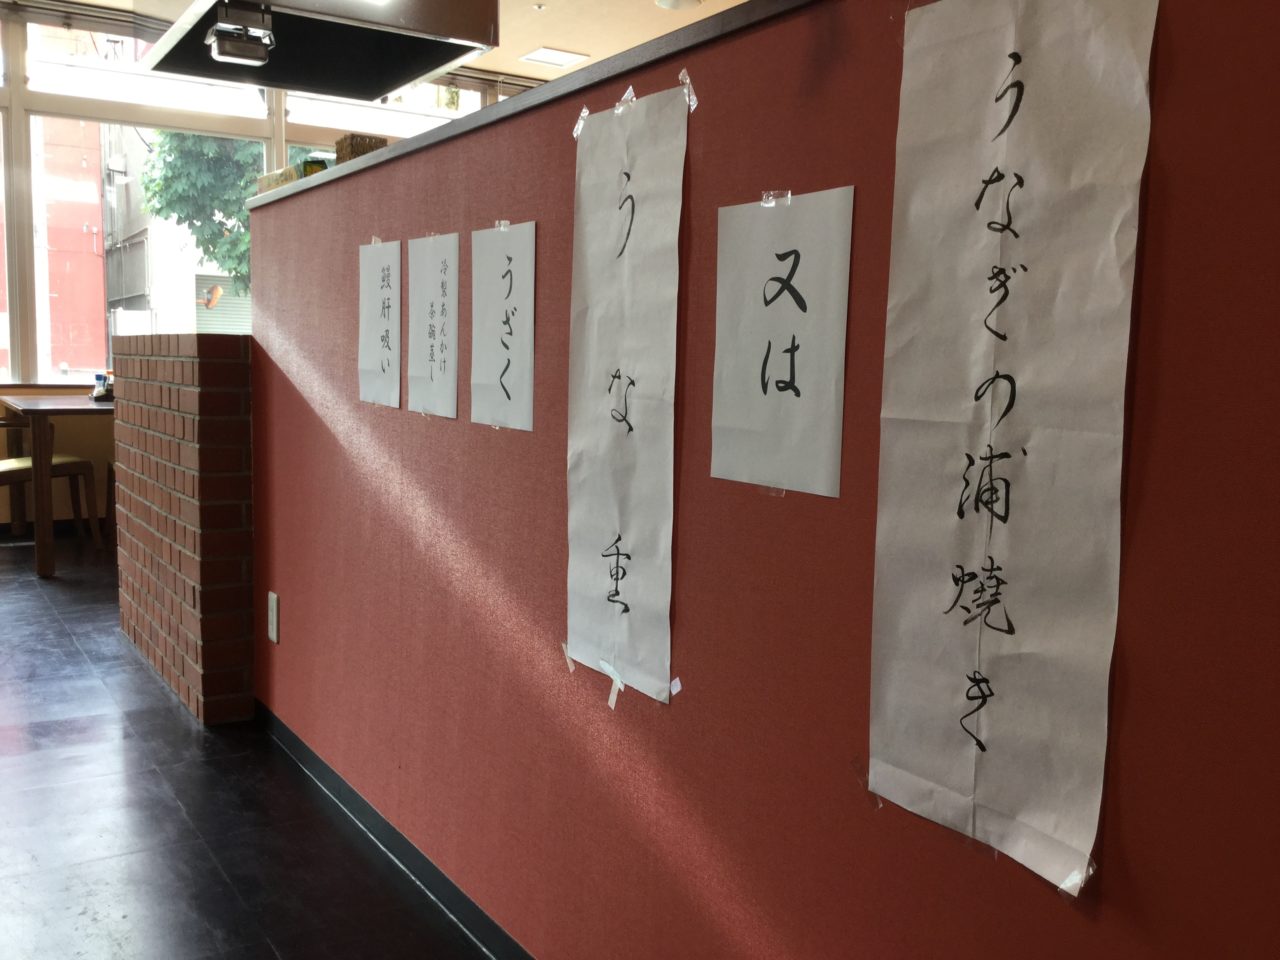 うなぎの浦焼き
又は
うな重
うざく
冷製あんかけ
茶碗蒸し
鰻肝吸い